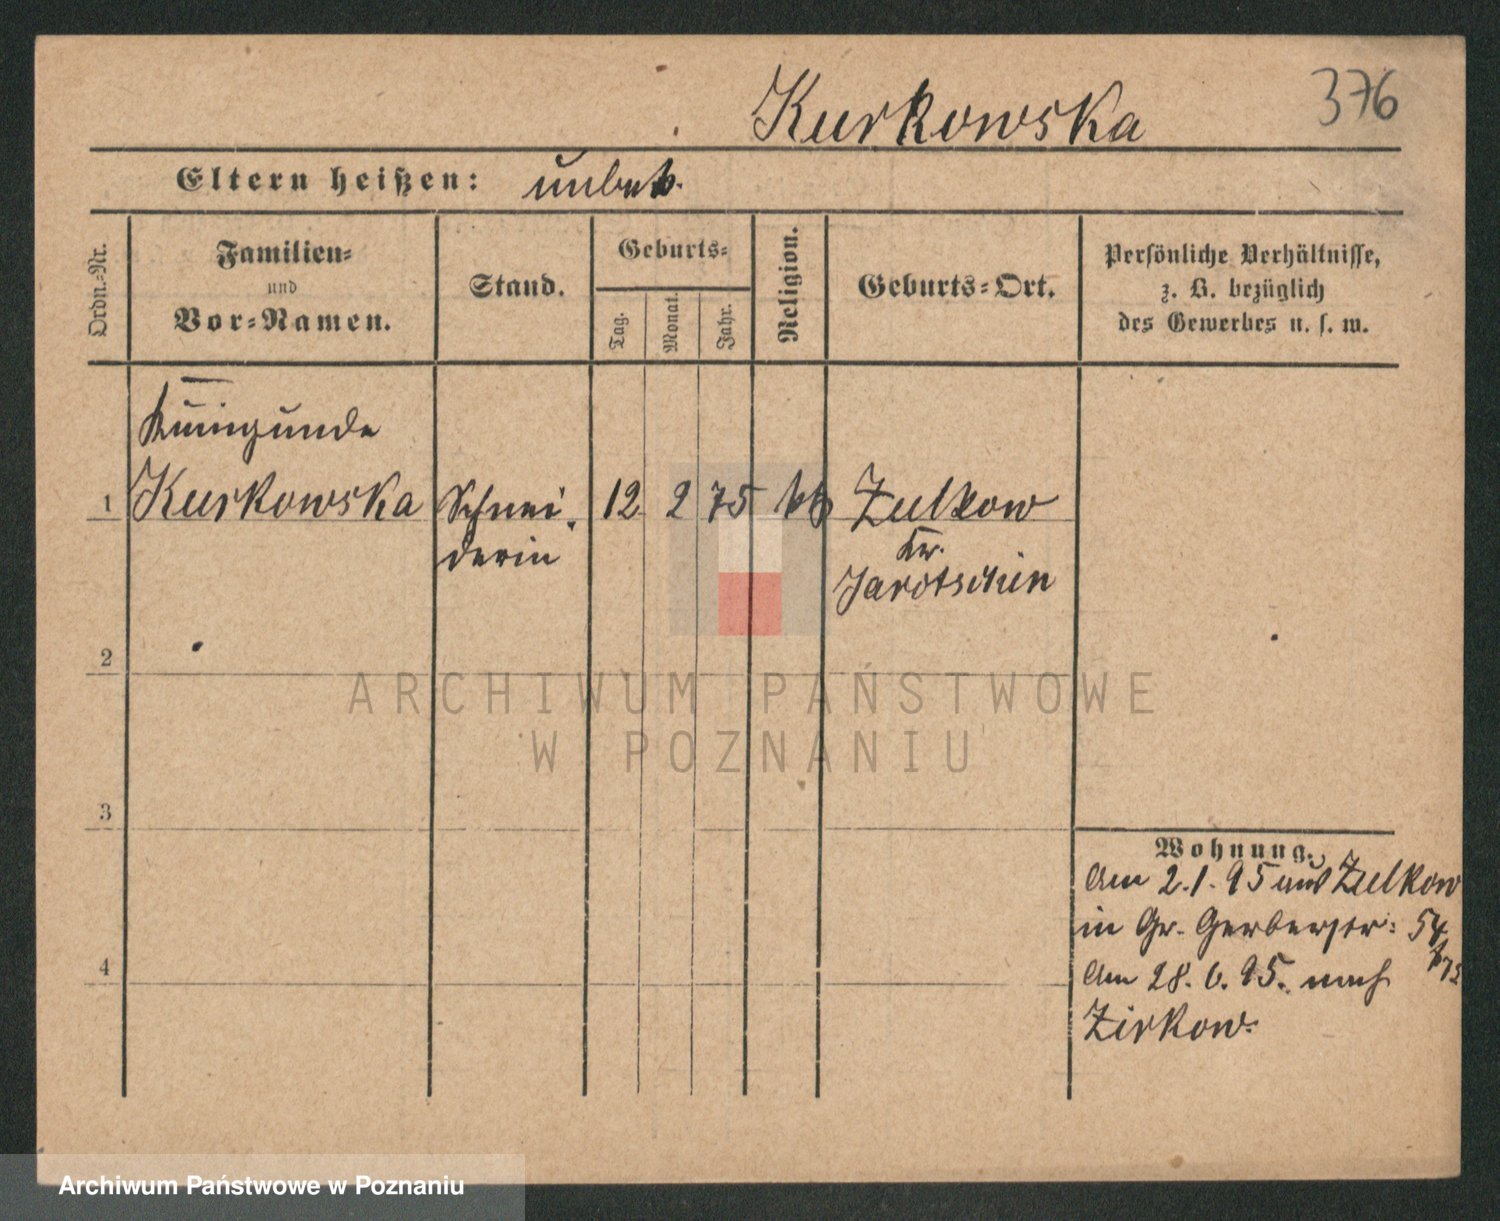 376
Kurkowska
Eltern heißen: unbek.
Ordn.-Nr.
Familien-
und
Vor-Namen.
Stand.
Geburts-
Tag.
Monat.
Jahr.
Religion.
Geburts-Ort.
Persönliche Verhältnisse,
z. B. bezüglich
des Gewerbes u. s. w.
Kunigunde
1 Kurkowska Schnei- 12 2 75 kth Zulkow
derin
Kr.
Jarotschin
2
ARCHIWUM PAŃSTWOWE
W POZNANIU
3
Wohnung.
Am 2.1.95 aus Zulkow
in Gr. Gerberstr: 54
4
Am 28.6.95. nach
Zirkow.
Archiwum Państwowe w Poznaniu